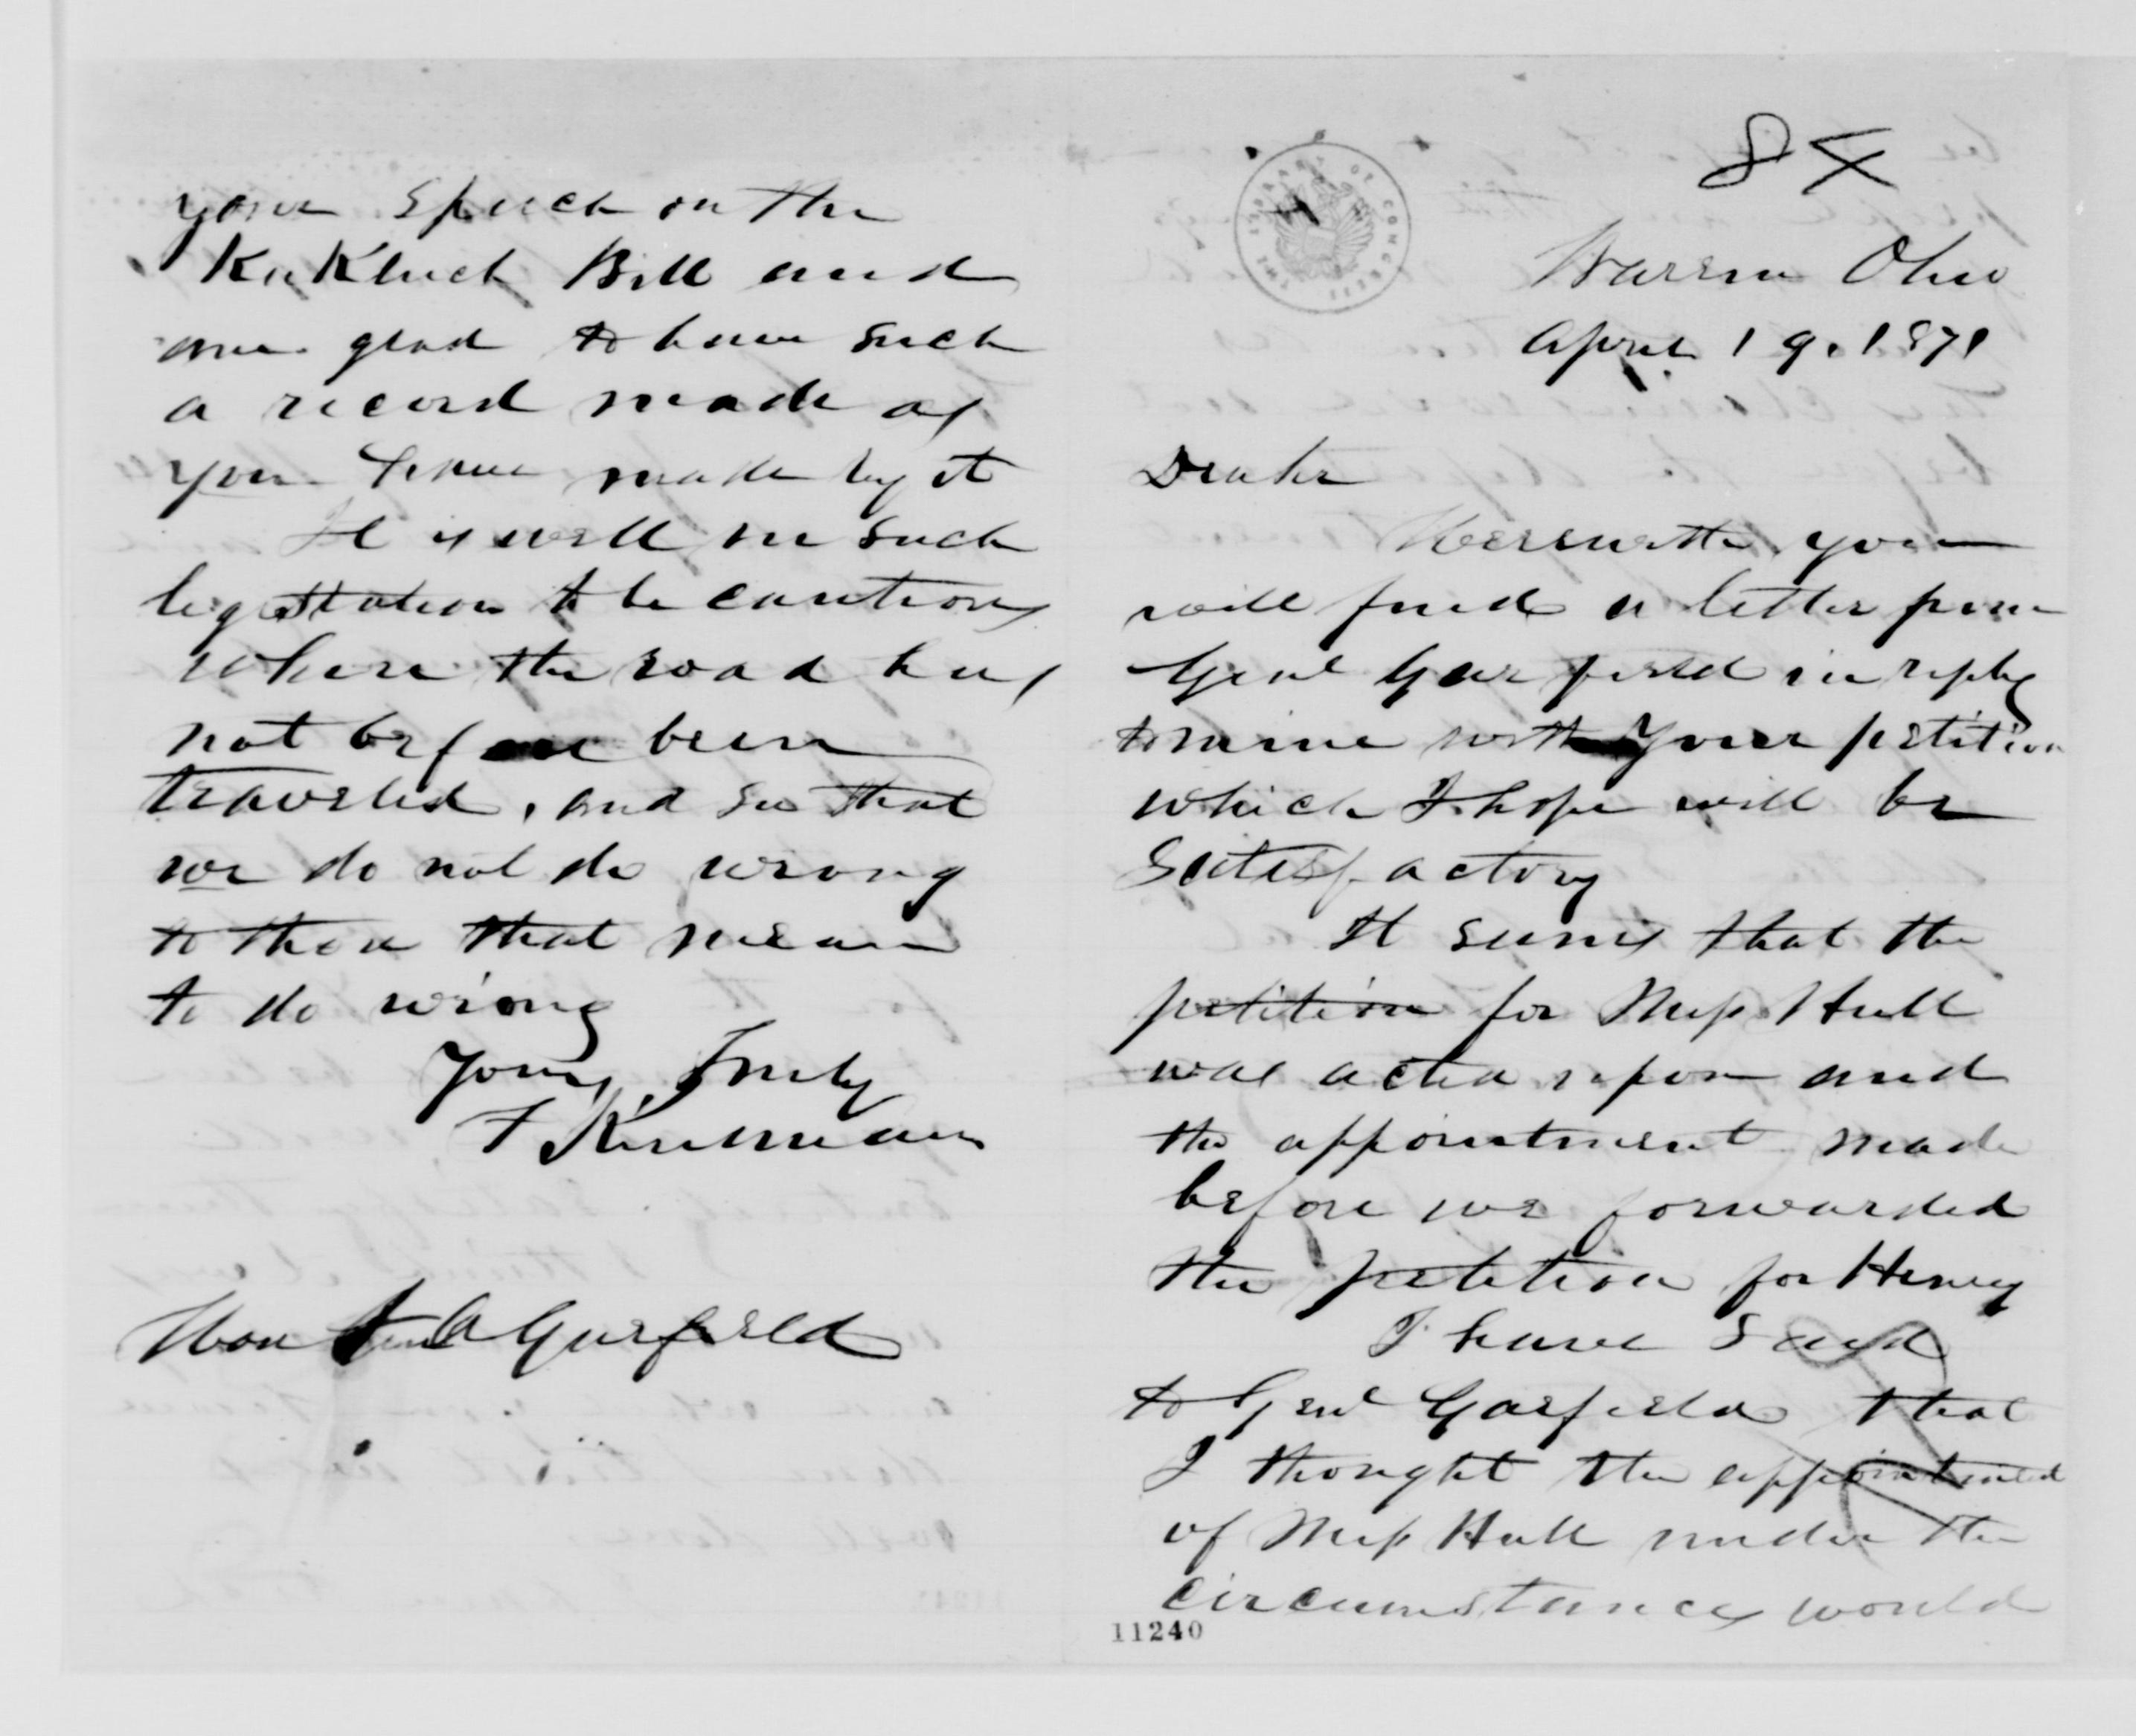 84
Warren Ohio
April 19. 1871
Dear Sir
Herewith you
will find a letter from
Genl Garfield in reply
to mine with your petition
which I hope will be
Satisfactory
It seems that the
petition for Miss Hull
was acted upon and
the appointment made
before we forwarded
the petition for Henry
I have Said
to Genl Garfield that
I thought the appointment
of Miss Hull under the
circumstances would
11240
THE LIBRARY OF CONGRESS
your speech on the
KuKluck Bill and
am glad to have such
a record made as
you have made by it
It is well in such
legislation to be cautious
where the road has
not before been
traveled, and see that
we do not do wrong
to those that mean
to do wrong
Yours Truly
F Kinsman
Hon A Garfield